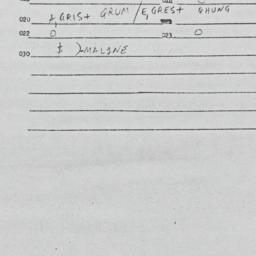 020 A, GRIS+ GRUM / E, GRES+ GHUNG
022 0 023 0
030 $ MALINE